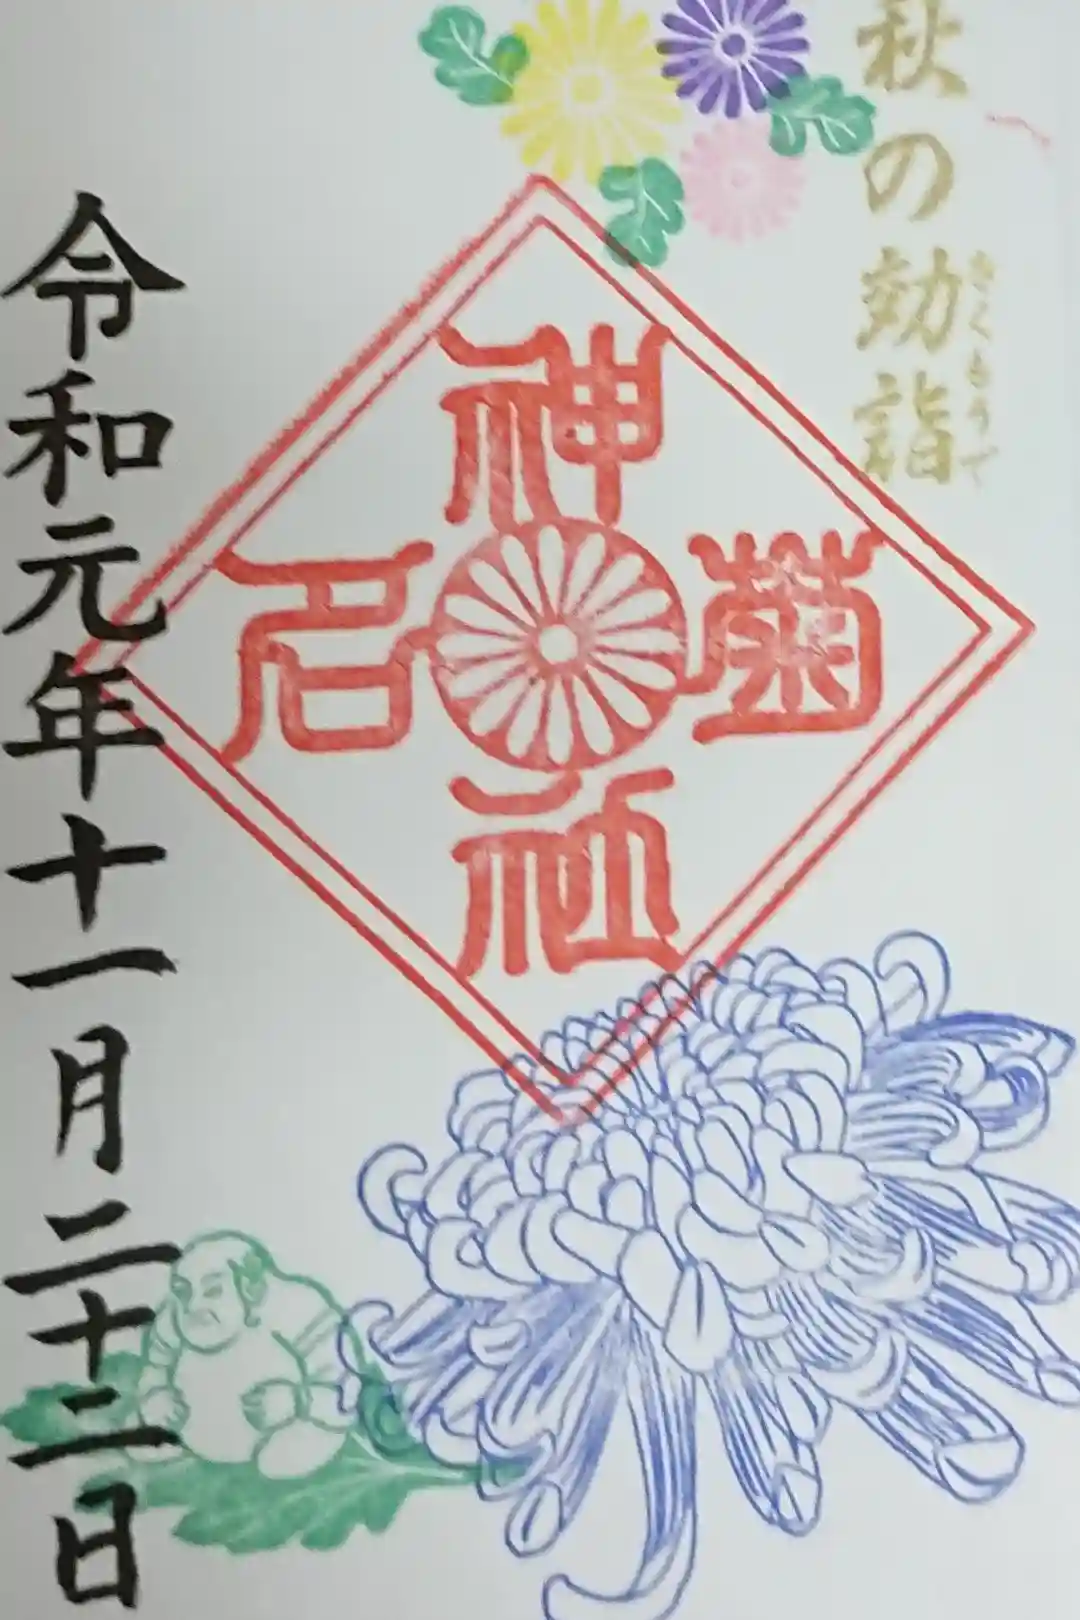 秋の効詣
きくもうで
菊名
神社
令和元年十一月二十二日